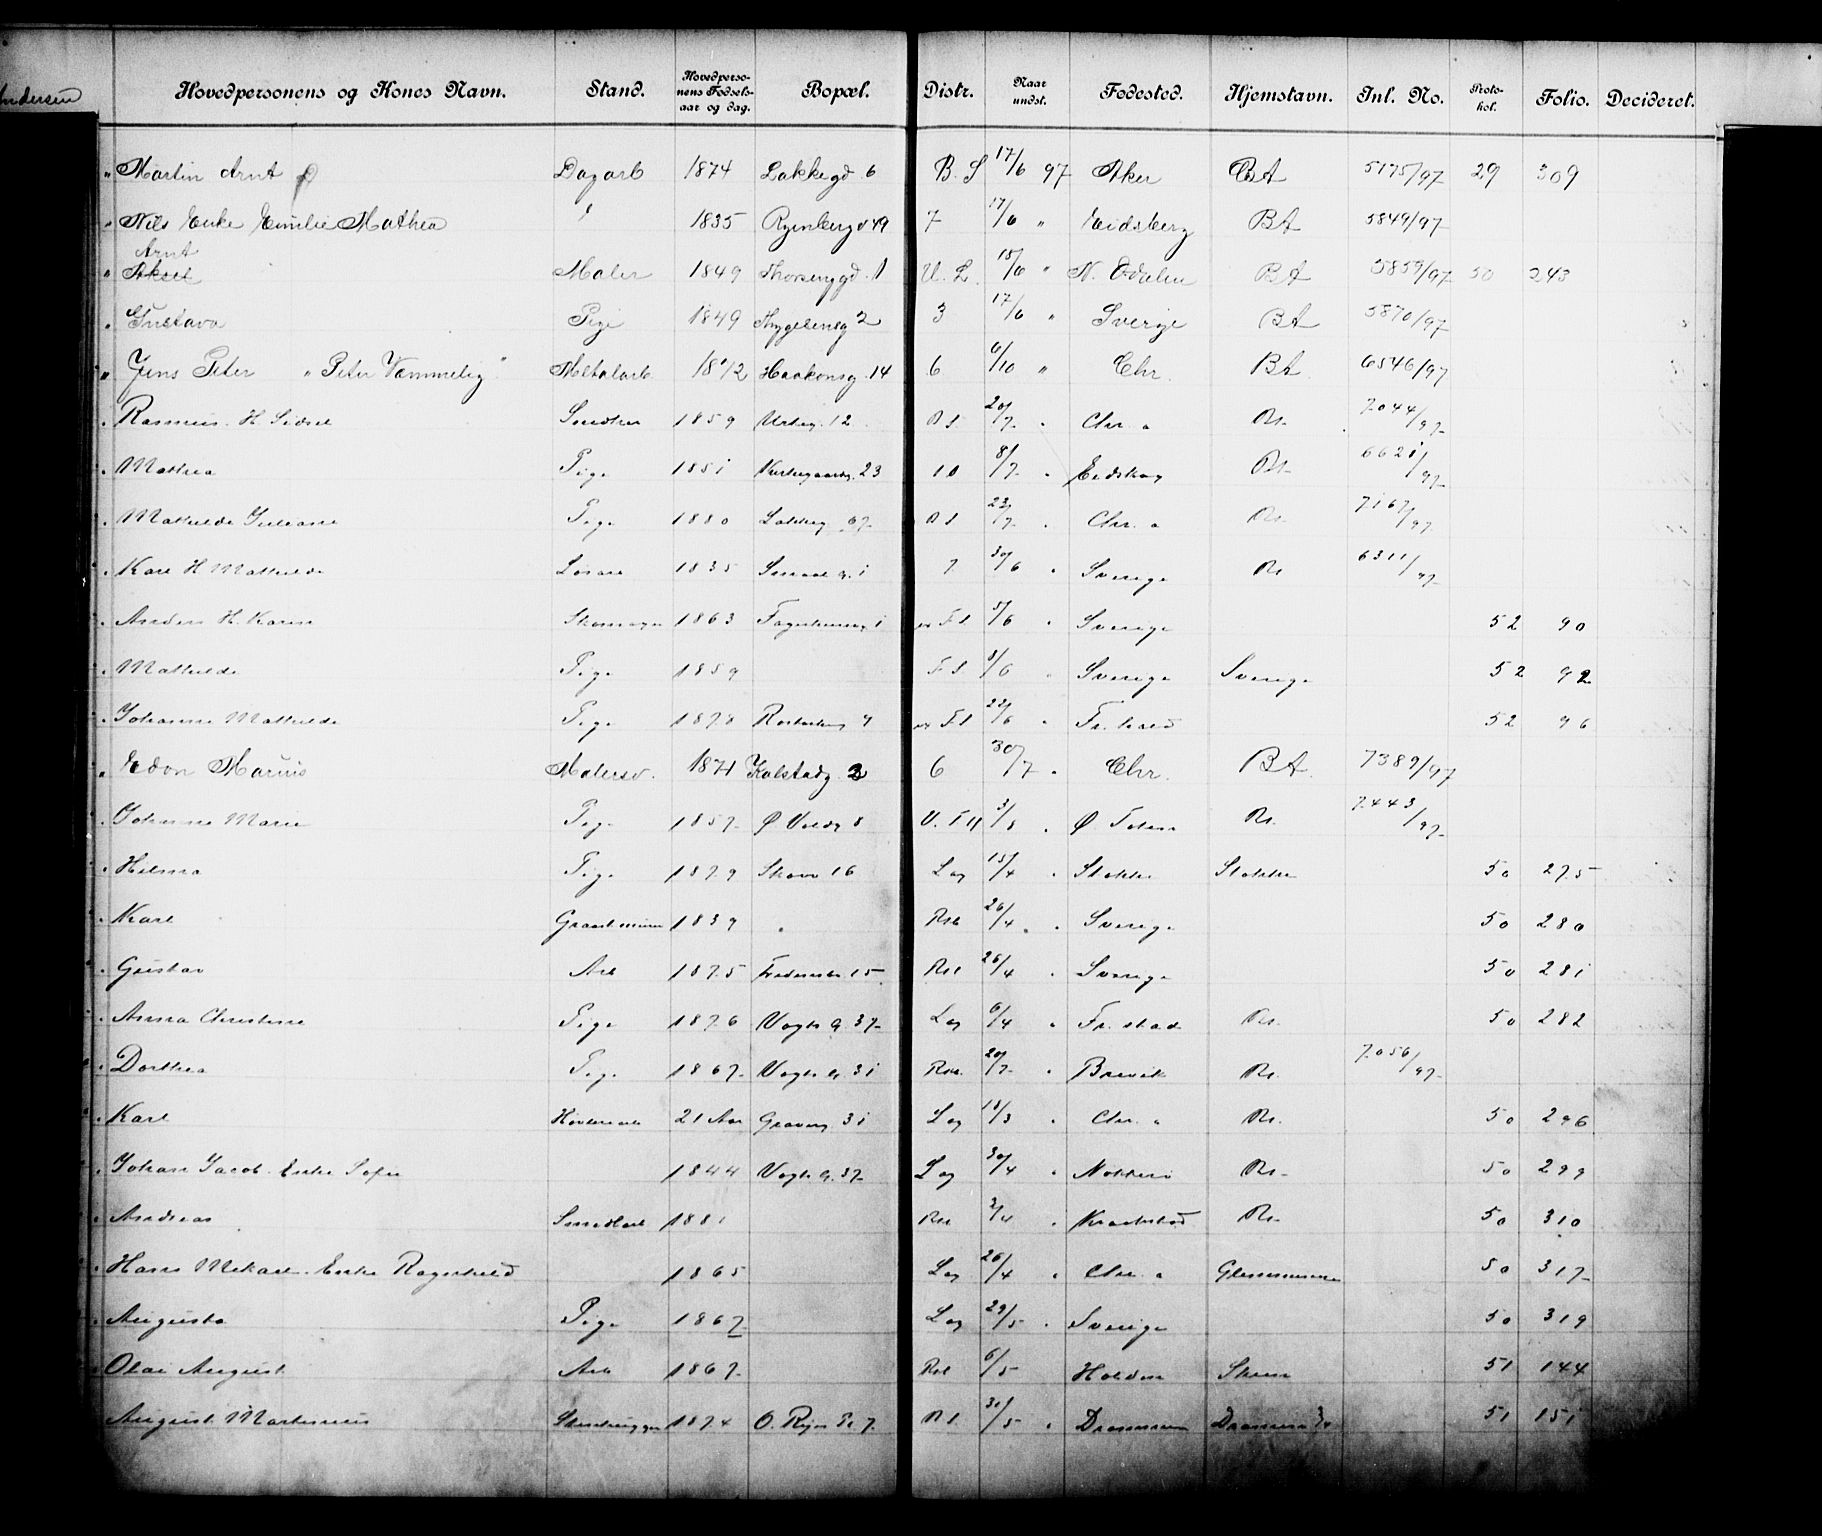 Andersen
Hovedpersonens og Kones Navn. Stand. Hovedpersonens Fødselsaar og dag. Bopæl. Distr. Naar undst. Fødested. Hjemstavn. Inl. No. Protokol. Folio. Decideret.
" Martin Arnt Dagarb 1874 Lakkegd 6 B. S 17/6 97 Aker BA 5175/97 29 309
" Nils Enke Emilie Mathea 1835 Ryenbergv 49 7 17/6 " Eidsberg BA 5849/97
Arnt
" Aksel Maler 1849 Thorsenggd. 1 U. L. 15/6 " N. Odalen BA 5859/97 50 243
" Gustava Pige 1849 Thygelensg 2 3 17/6 " Sverige BA 5870/97
" Jens Peter " Peter Vemmelig " Metalarb. 1872 Haakonsg. 14 6 6/10 " Chr. BA 6546/97
" Rasmus. H. Sidsel Snedker 1859 Urteg. 12 BS. 20/7 " Chr. a Bt. 7044/97
" Mathea Pige 1851 Kirkegaardg. 23 10 8/7 " Eidskog Bt. 6621/97
" Mathilde Juliane Pige 1880 Lakkeg 67 BS 22/7 " Chr. a Bt. 7167/97
" Karl H Mathilde Løsarb 1835 Smaalg. 1 7 30/6 " Sverige Bt 6311/97
" Anders H. Karin Skomager 1863 Fagerheimsg 1 FS 5/6 " Sverige 52 90
" Mathilde Pige 1859 FS 8/6 " Sverige Sverige 52 92
" Johanne Mathilde Pige 1878 FS 22/6 " Fr. hald 52 96
" Edvn Marius Malersv. 1871 Kolstadg 2 6 30/7 " Chr. BA. 7389/97
" Johanne Marie Pige 1857 Ø Voldg 8 V. 3/8 " Ø. Toten Bt. 7443/97
" Hilma Pige 1879 Skovv 16 Lag 15/4 " Stokke Stokke 50 275
" Karl Graastensm 1839 " Rst 26/4 " Sverige 50 280
" Gustav Arb 1875 15 Rst 26/4 " Sverige 50 281
" Anna Christine Pige 1876 Vogts g. 37 Lag 6/4 " Fr. stad Bt. 50 282
" Dorthea Pige 1867 Vogts g. 31 20/7 " Brevik Bt. 7056/97
" Karl 21 Aar Graverg 31 Lag 18/3 " Chr. a Bt. 50 296
" Johan Jacob. Enke Sofie 1844 Vogts g. 37 Lag 30/4 " Nøtterø Bt. 50 299
" Andreas Smedlærl 1881 Rst 2/4 " Kraakstad Bt. 50 310
" Hans Mikael. Enke Ragnhild 1865 Lag 26/4 " Chr. a Glemminge 50 317
" Augusta Pige 1867 Lag 29/5 " Sverige 50 319
" Olai August Arb 1867 Rst 6/5 " Holden Skien 51 144
" August Martinius Stenhugger 1874 O. Ryes Pl. 7. Bt. 31/5 " Drammen Drammen 51 151